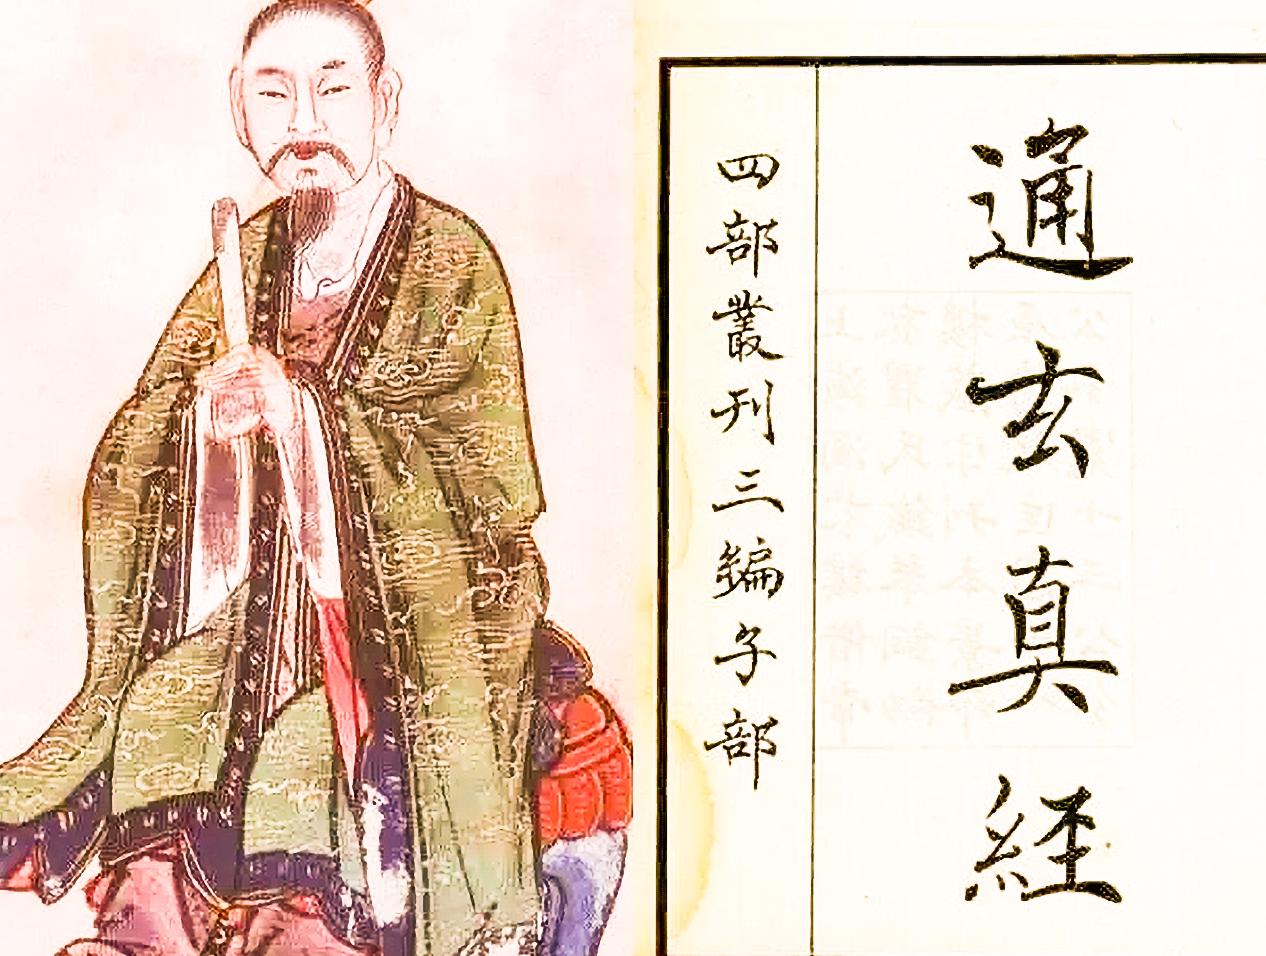 通玄真経
四部叢刊三編子部